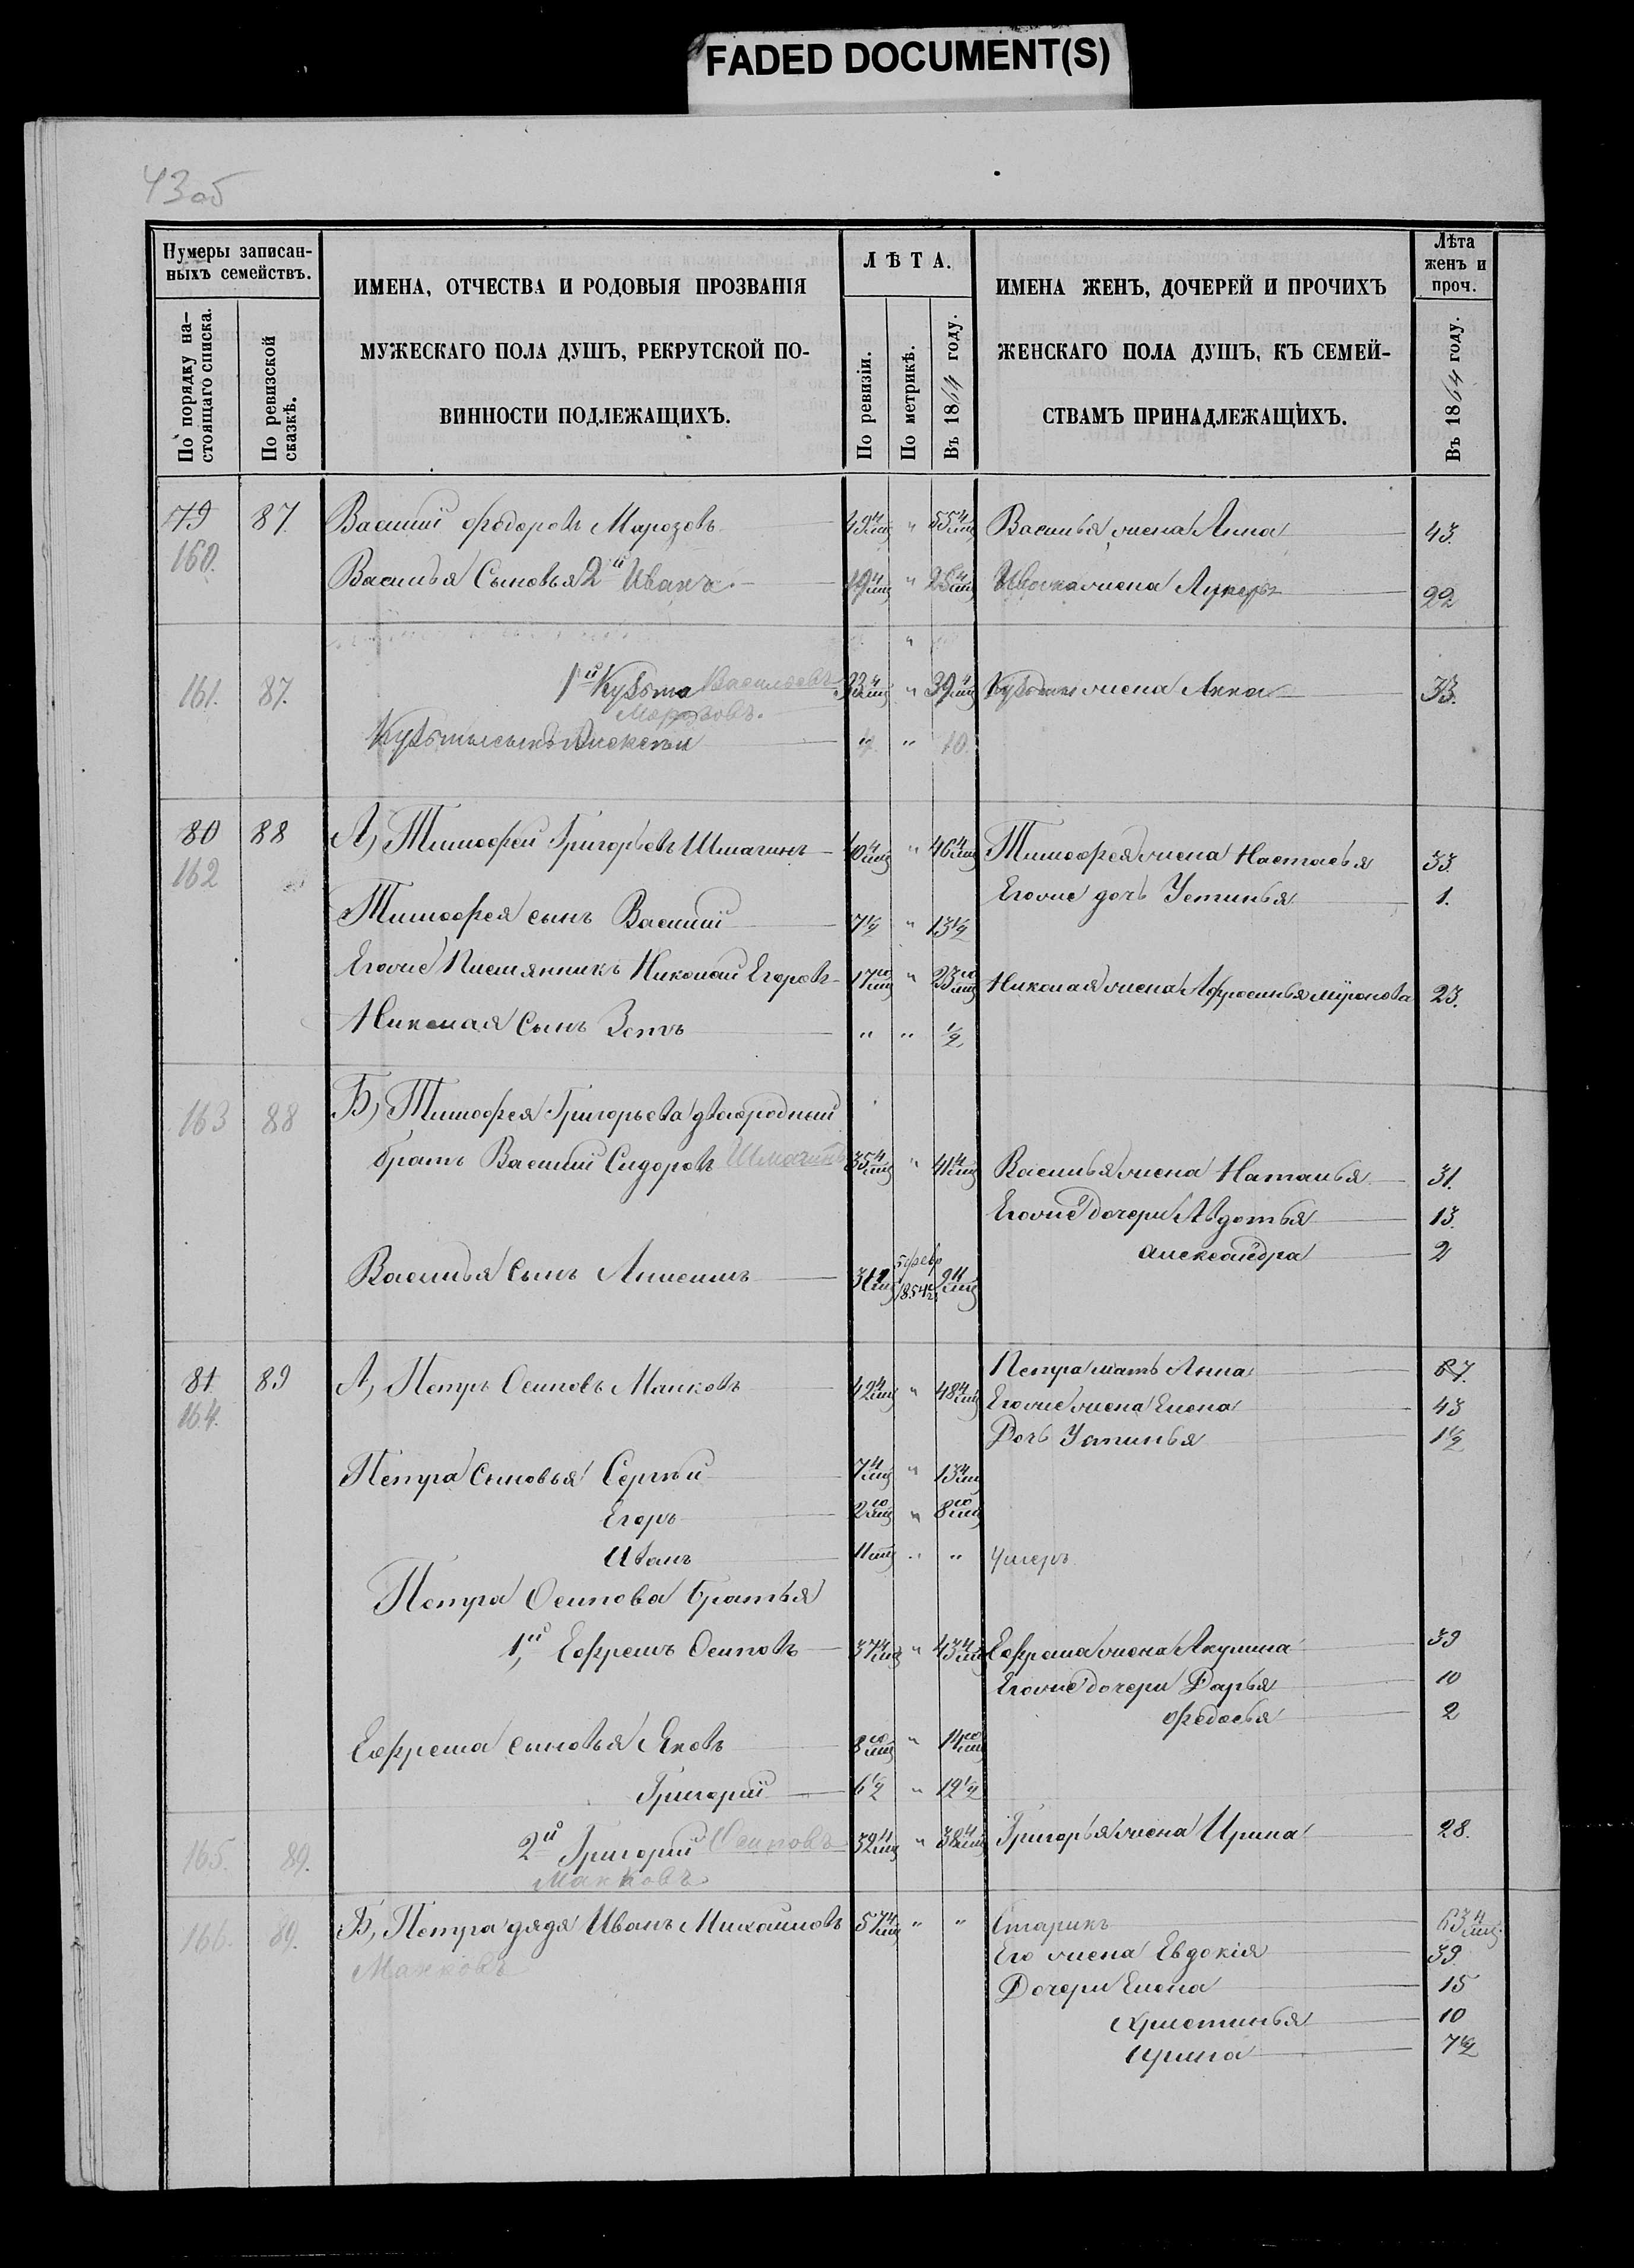 FADED DOCUMENT(S)
43 об
Нумеры записан-
ныхъ семействъ.
По порядку на-
стоящаго списка.
По ревизской
сказкѣ.
ИМЕНА, ОТЧЕСТВА И РОДОВЫЯ ПРОЗВАНІЯ
МУЖЕСКАГО ПОЛА ДУШЪ, РЕКРУТСКОЙ ПО-
ВИННОСТИ ПОДЛЕЖАЩИХЪ.
ЛѢТА.
По ревизіи.
По метрикѣ.
Въ 1864 году.
ИМЕНА ЖЕНЪ, ДОЧЕРЕЙ И ПРОЧИХЪ
ЖЕНСКАГО ПОЛА ДУШЪ, КЪ СЕМЕЙ-
СТВАМЪ ПРИНАДЛЕЖАЩИХЪ.
Лѣта
женъ и
проч.
Въ 1864 году.
79 87. Василий Ѳедоровъ Марозовъ " Василья жена Анна 43.
160.
Василья Сыновья 2й Иванъ " Ивана жена 22
161. 87. 1й Кузьма Васильевъ " Кузьмы жена Анна 33.
Морозовъ.
Кузьмы сынъ Алексѣй 4. " 10.
80 88 А, Тимофей Григорьевъ Шмагинъ 40 4/мц " 46 4/мц Тимофея жена Настасья 33.
162
Егоже дочь Устинья 1.
Тимофея сынъ Василий 7 1/2 " 13 1/2
Егоже Племянникъ Николай Егоровъ 17 10/мц " 23 10/мц Николая жена Афросинья 23.
Николая Сынъ Зотъ " " 1/2
163 88 Б, Тимофея Григорьева двоюродный
братъ Василий Сидоровъ Шмагинъ 35 4/мц " 41 4/мц Василья жена Наталья 31.
Егоже дочери Авдотья 13.
Александра 2
Василья Сынъ Анисимъ 5 февр 1854
81 89 А, Петръ Осиповъ Манковъ 42 4/мц " 48 4/мц
164.
Петра мать Анна 67.
Егоже жена Елена 43
Дочь Устинья 1 1/2
Петра Сыновья Сергѣй 7 4/мц " 13 4/мц
Егоръ 2 10/мц " 8 10/мц
Иванъ 11 мц " " Умеръ
Петра Осипова братья
1й, Ефремъ Осиповъ 37 4/мц " 43 4/мц Ефрема жена Акулина 39
Егоже дочери Дарья 10
Ѳедосья 2
Ефрема сыновья Яковъ 8 10/мц " 14 10/мц
Григорий 6 1/2 " 12 1/2
165. 89. 2й Григорий Осиповъ 32 4/мц " 38 4/мц Григорья жена Ирина 28.
Манковъ
166. 89. Б, Петра дядя Иванъ Михайловъ 57 4/мц " " Старикъ 63 4/мц.
Манковъ
Его жена Евдокія 39
Дочери Елена 15
Христинья 10
Ирина 7 1/2